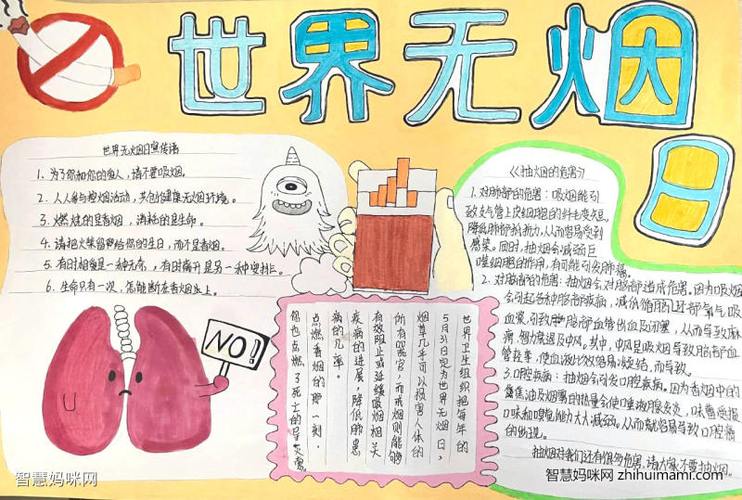 世界无烟日
世界无烟日宣传语
1、为了你和你的家人,请不要吸烟。
2、人人参与控烟活动,共创健康无烟环境。
3、燃烧的是香烟,消耗的是生命。
4、请把火柴留给你的生日,而不是香烟。
5、有时相爱是一种无奈,有时离开是另一种安排。
6、生命只有一次,怎能断在香烟上。
NO!
世界卫生组织把每年的
5月31日定为世界无烟日,
烟草几乎可以损害人体的
所有器官,而戒烟则能够
有效阻止或延缓吸烟相关
疾病的进展,降低肺患
病的几率。
点燃香烟的那一刻,
你也点燃了死亡的导火索。
《抽烟的危害》
1.对肺部的危害:吸烟能引
致支气管上皮细胞的纤毛变短
降低肺部抗折力,从而容易受到
感染。同时,抽烟会减弱巨
噬细胞的作用,有可能引发肺癌。
2.对脑部的危害:抽烟会对脑部造成危害。因为吸烟
会引起各种脑部疾病,减低脑部氧气
血量引致脑部血管出血及闭塞,从而导致麻
痹,智力衰退及中风。其中,中风是吸烟导致脑部血
管痉挛,使血液比较容易凝结,而导致。
3.口腔疾病:抽烟会引发口腔疾病。因为香烟中的
焦油及烟雾的热量会使唾液腺发炎,味蕾受损
口味和嗅觉能力大大减弱,从而就容易导致口腔病
的出现。
抽烟对我们还有很多危害,请大家不要抽烟。
智慧妈咪网
智慧妈咪网 zhihuimami.com